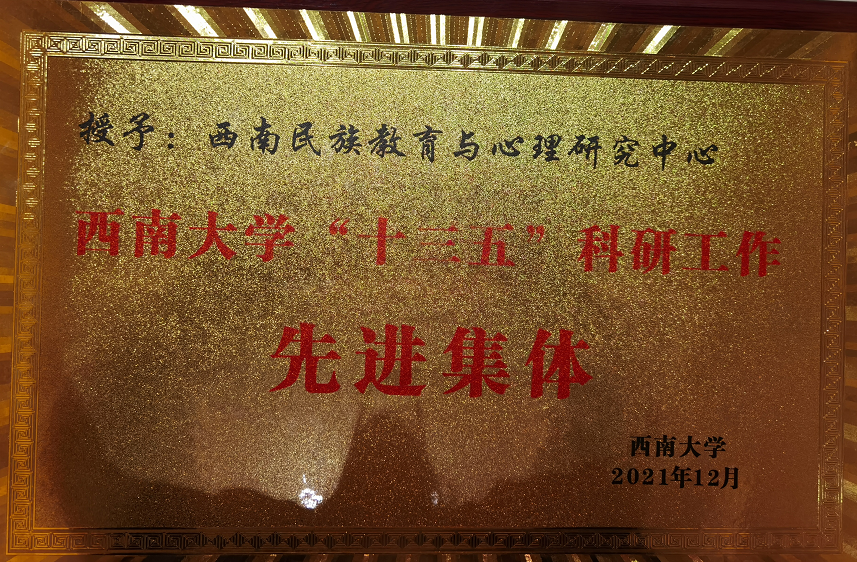 授予：西南民族教育与心理研究中心
西南大学“十三五”科研工作
先进集体
西南大学
2021年12月